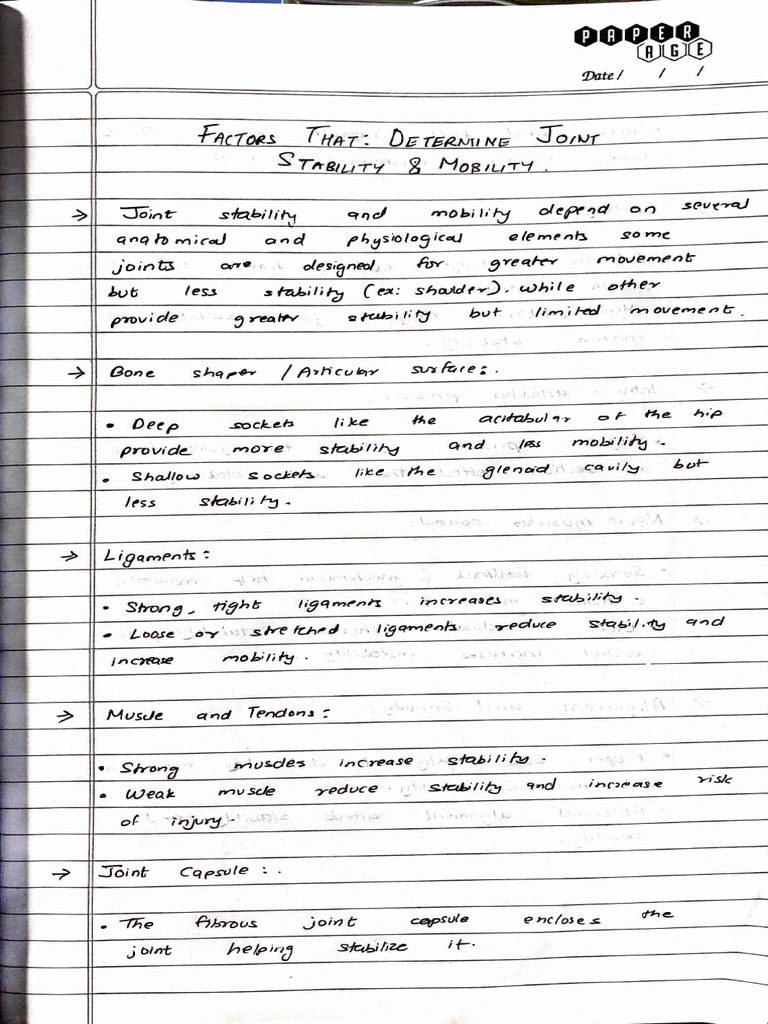 PAPER
AGE
Date / / /
FACTORS THAT: DETERMINE JOINT
STABILITY & MOBILITY.
→ Joint stability and mobility depend on several
anatomical and physiological elements some
joints are designed for greater movement
but less stability (ex: shoulder). while other
provide greater stability but limited movement.
→ Bone shaper / Articular surface:.
• Deep sockets like the acitabular of the hip
provide more stability and less mobility.
• Shallow sockets like the glenoid cavily but
less stability.
→ Ligaments:
• Strong, tight ligaments increases stability.
• Loose or stretched ligaments reduce stability and
increase mobility.
→ Muscle and Tendons:
• Strong muscles increase stability.
• Weak muscle reduce stability and increase risk
of injury.
→ Joint Capsule:.
• The fibrous joint capsule encloses the
joint helping stabilize it.